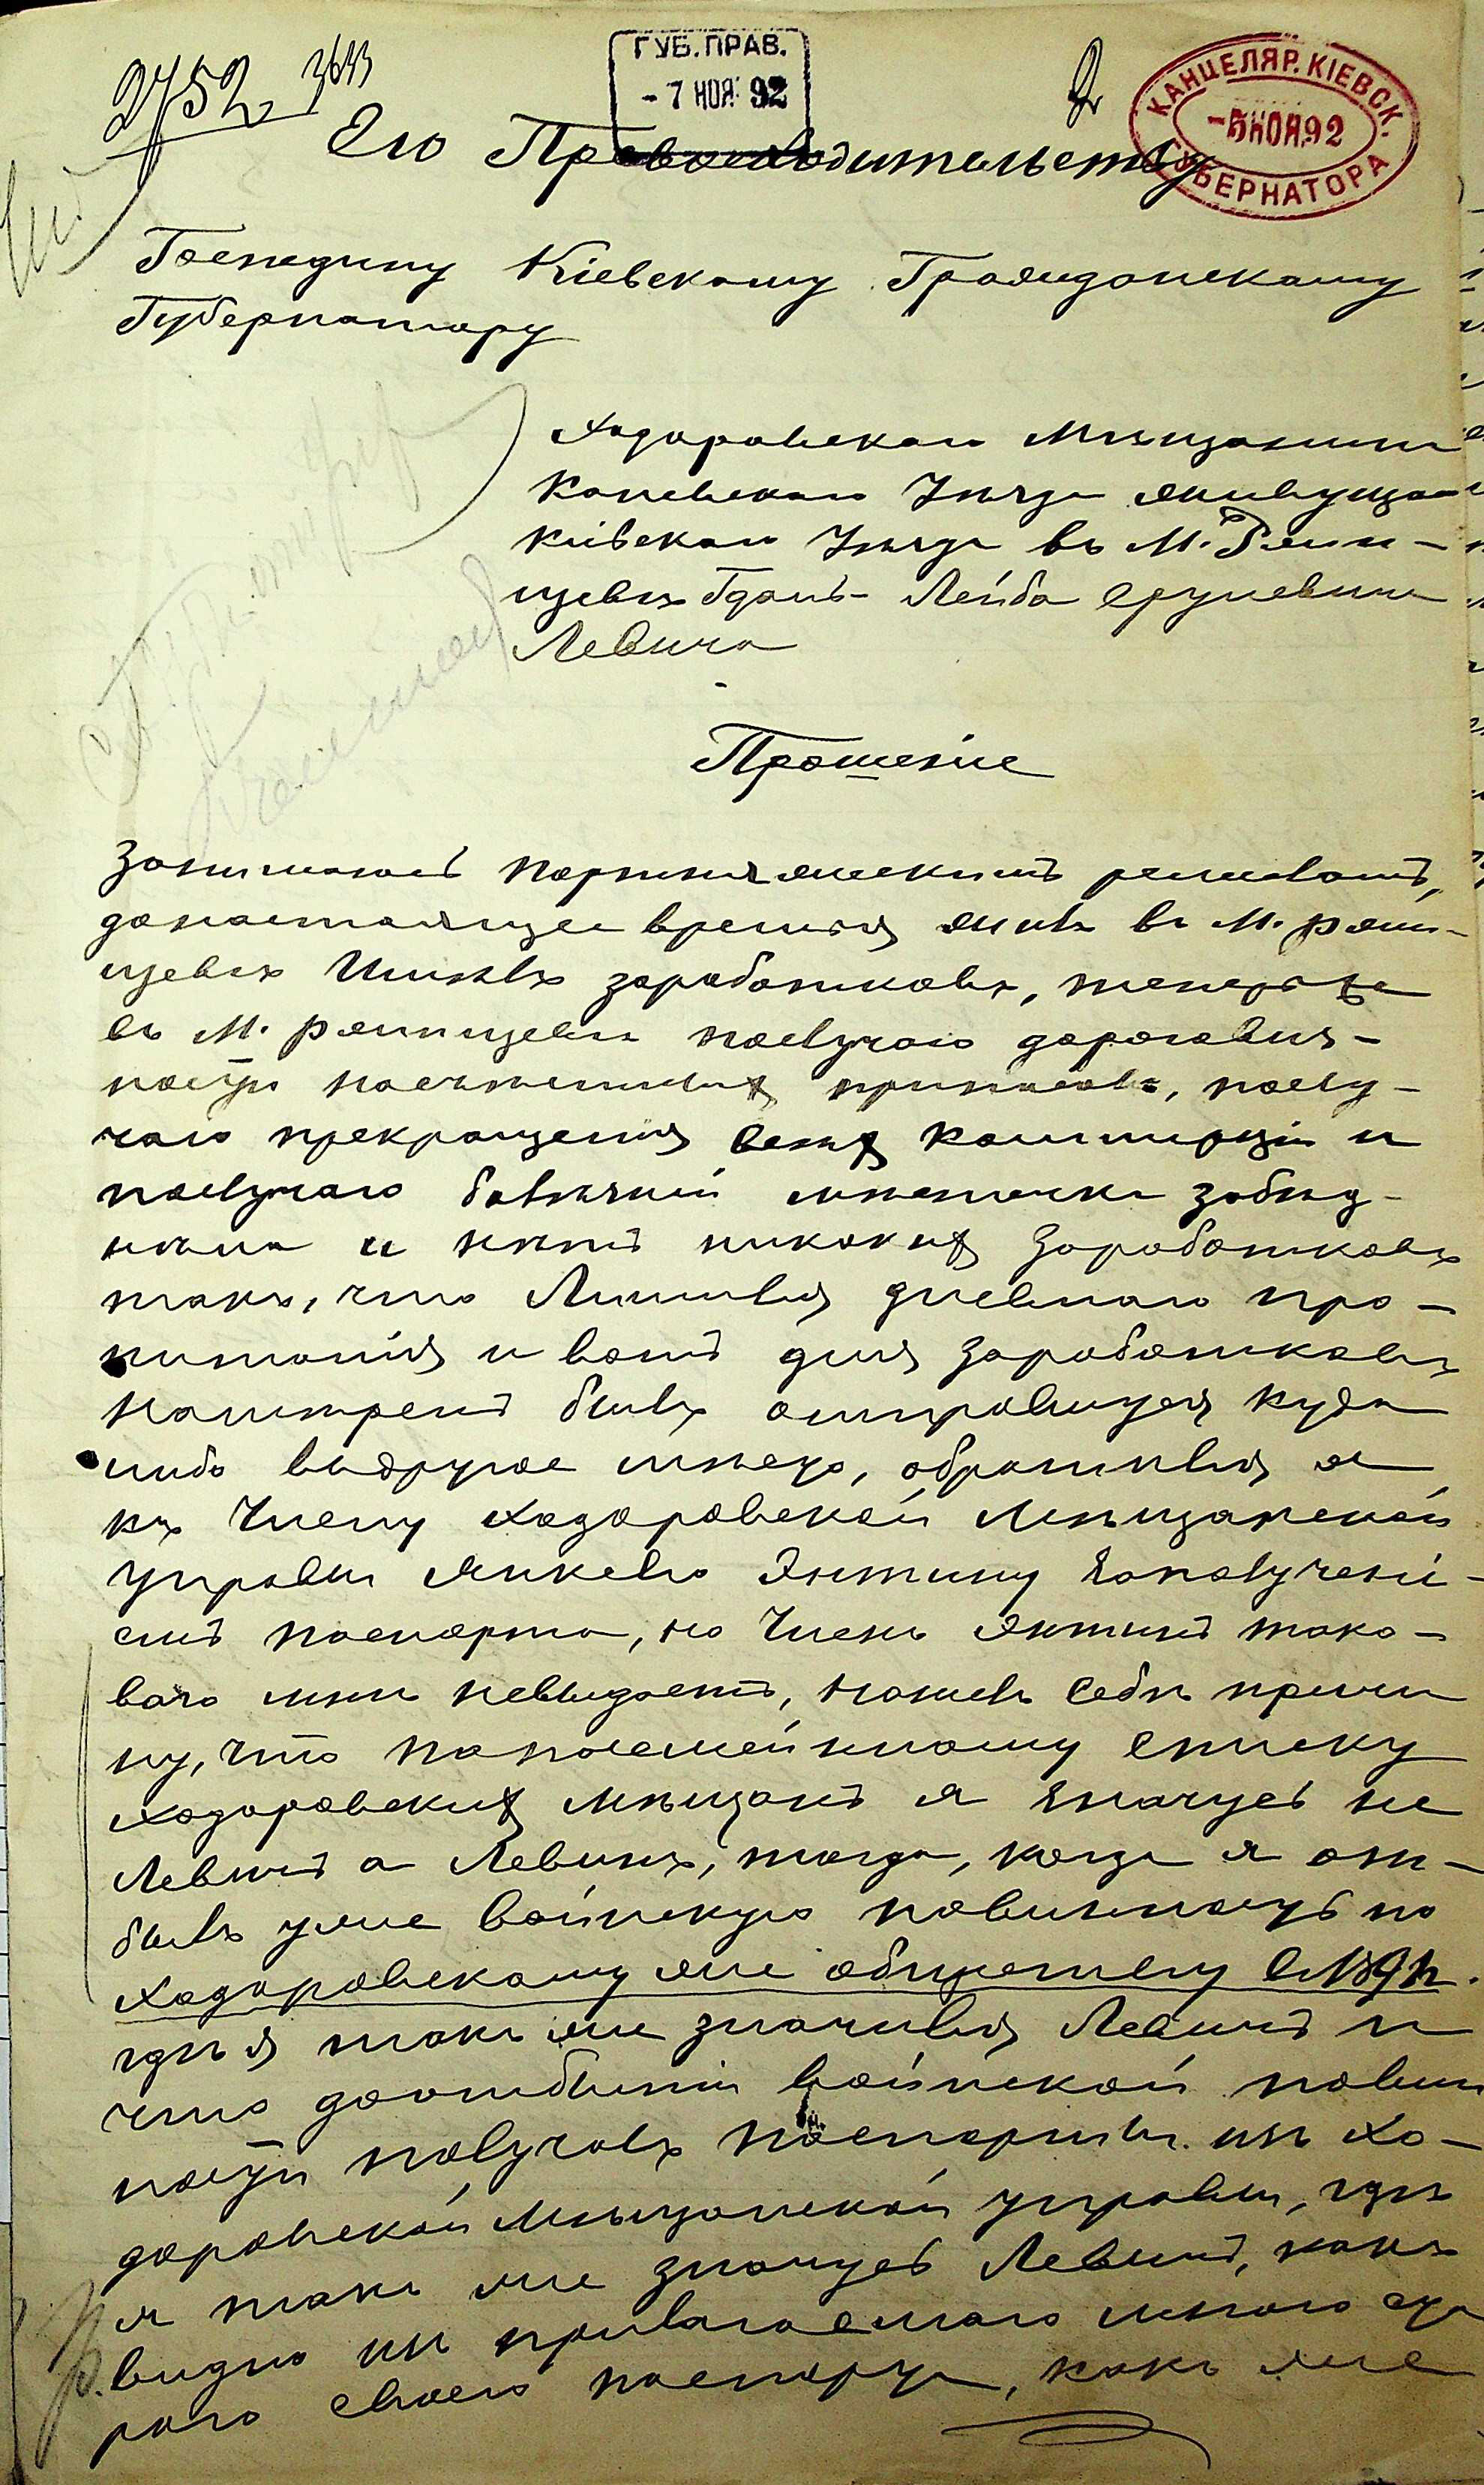 2752 3633
ГУБ. ПРАВ.
- 7 НОЯ 92
КАНЦЕЛЯР. КІЕВСК. ГУБЕРНАТОРА
- 5 НОЯ 92
Его Превосходительству
Господину Кіевскому Гражданскому
Губернатору
Ходоровскаго Мѣщанина
Каневскаго Уѣзда живущаго
Кіевскаго Уѣзда въ М. Ржи-
щевѣ Гдаль-Лейба Срулевича
Левича
Прошеніе
Занимаюсь портняжескимъ ремесломъ,
донастоящее время жилъ въ М. Ржи-
щевѣ Имѣлъ заработковъ, теперь же
въ М. Ржищевѣ послучаю дороговиз-
ности посчетныхъ припасовъ, послу-
чаю прекращенія всѣхъ коммерціи и
послучаю болѣзней мѣстечко забѣд-
нѣло и нѣтъ никакихъ заработковъ
такъ, что Лишился дневнаго про-
питанія и вотъ для заработковъ
Намѣренъ былъ отправится куда
либо вьдругое мѣсто, обратился я
къ Члену Ходоровской Мѣщанской
управы Янкелю Энтину Заполучені-
емъ паспорта, но Членъ Энтинъ тако-
ваго мнѣ невыдаетъ, нашелъ Себѣ причи
ну, что попосемейнному списку
Ходоровскихъ мѣщанъ я Значусь не
Левичъ а Левинъ, тогда, когда я от-
былъ уже воинскую повинность по
Ходоровскому же обществу въ 189 г.
гдѣ я такъ же значился Левичъ и
что доотбытіи воинской повин
ности получалъ паспорты изъ Хо-
доровской Мѣщанской управы, гдѣ
я такъ же значусь Левичъ, какъ
видно изъ прилагаемаго мною ста
раго своего паспорта, какъ же